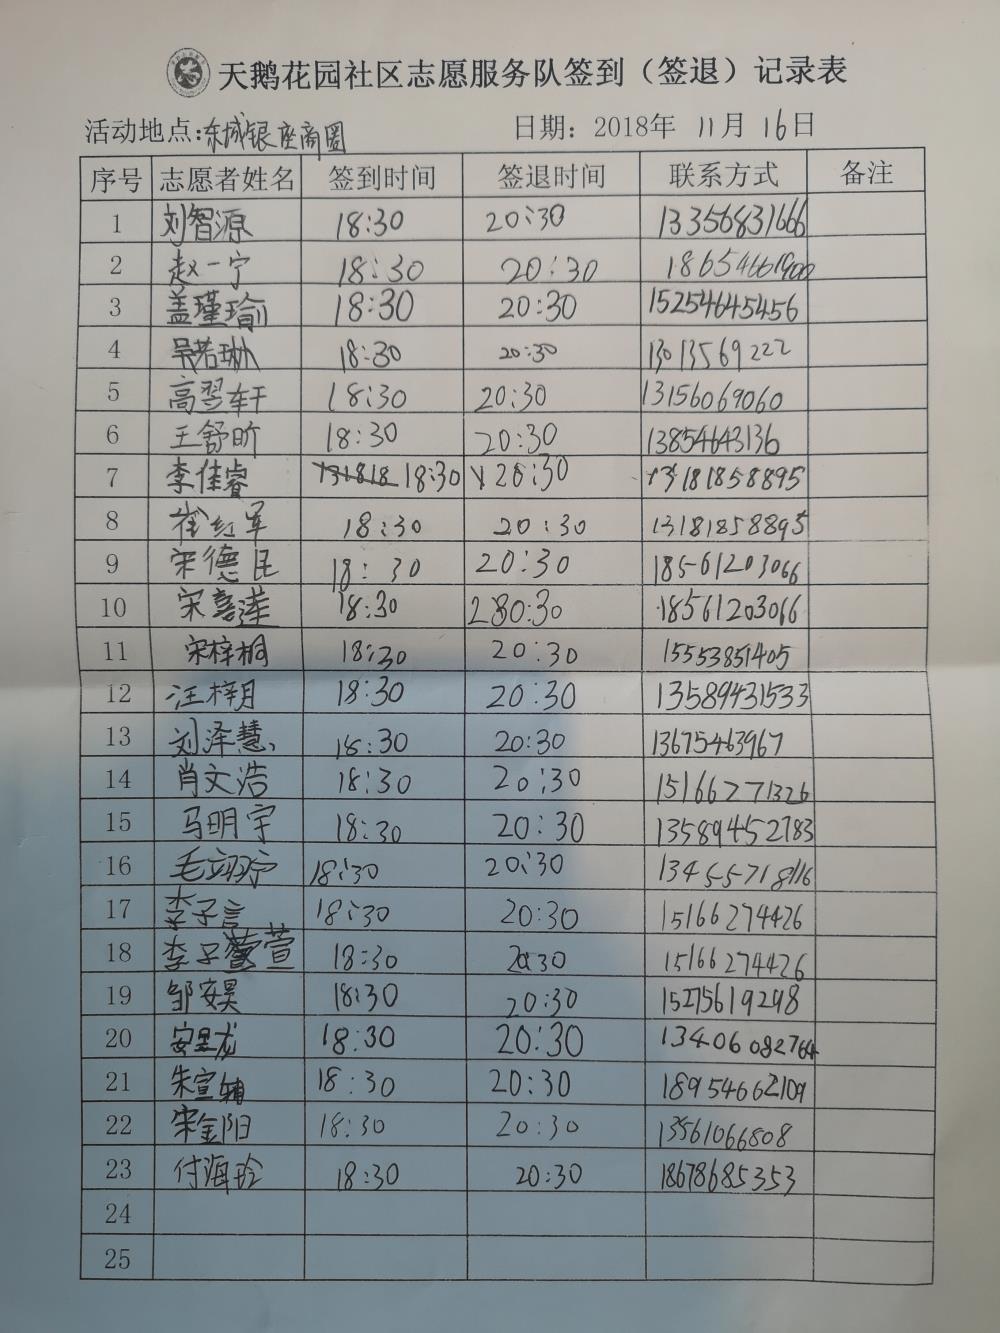 天鹅花园社区志愿服务队签到（签退）记录表
活动地点:东城银座商圈 日期：2018年 11月 16日
序号 志愿者姓名 签到时间 签退时间 联系方式 备注
1 刘智源 18:30 20:30 13356831666
2 赵一宁 18:30 20:30 18654661900
3 盖瑾瑜 18:30 20:30 15254645456
4 吴若琳 18:30 20:30 13013569222
5 高翌轩 18:30 20:30 13156069060
6 王舒昕 18:30 20:30 13854643136
7 李佳睿 18:30 20:30 13181858895
8 崔红军 18:30 20:30 13181858895
9 宋德民 18:30 20:30 18561203066
10 宋喜莲 18:30 20:30 18561203066
11 宋梓桐 18:30 20:30 15553851405
12 汪梓月 18:30 20:30 13589431533
13 刘泽慧 18:30 20:30 13675463967
14 肖文浩 18:30 20:30 15166271326
15 马明宇 18:30 20:30 13589452783
16 毛翊宁 18:30 20:30 13455718116
17 李子言 18:30 20:30 15166274426
18 李子萱 18:30 20:30 15166274426
19 邹安昊 18:30 20:30 15275619298
20 安昱龙 18:30 20:30 13406082764
21 朱宣辅 18:30 20:30 18954662109
22 宋金阳 18:30 20:30 13561066808
23 付海玲 18:30 20:30 18678685353
24
25